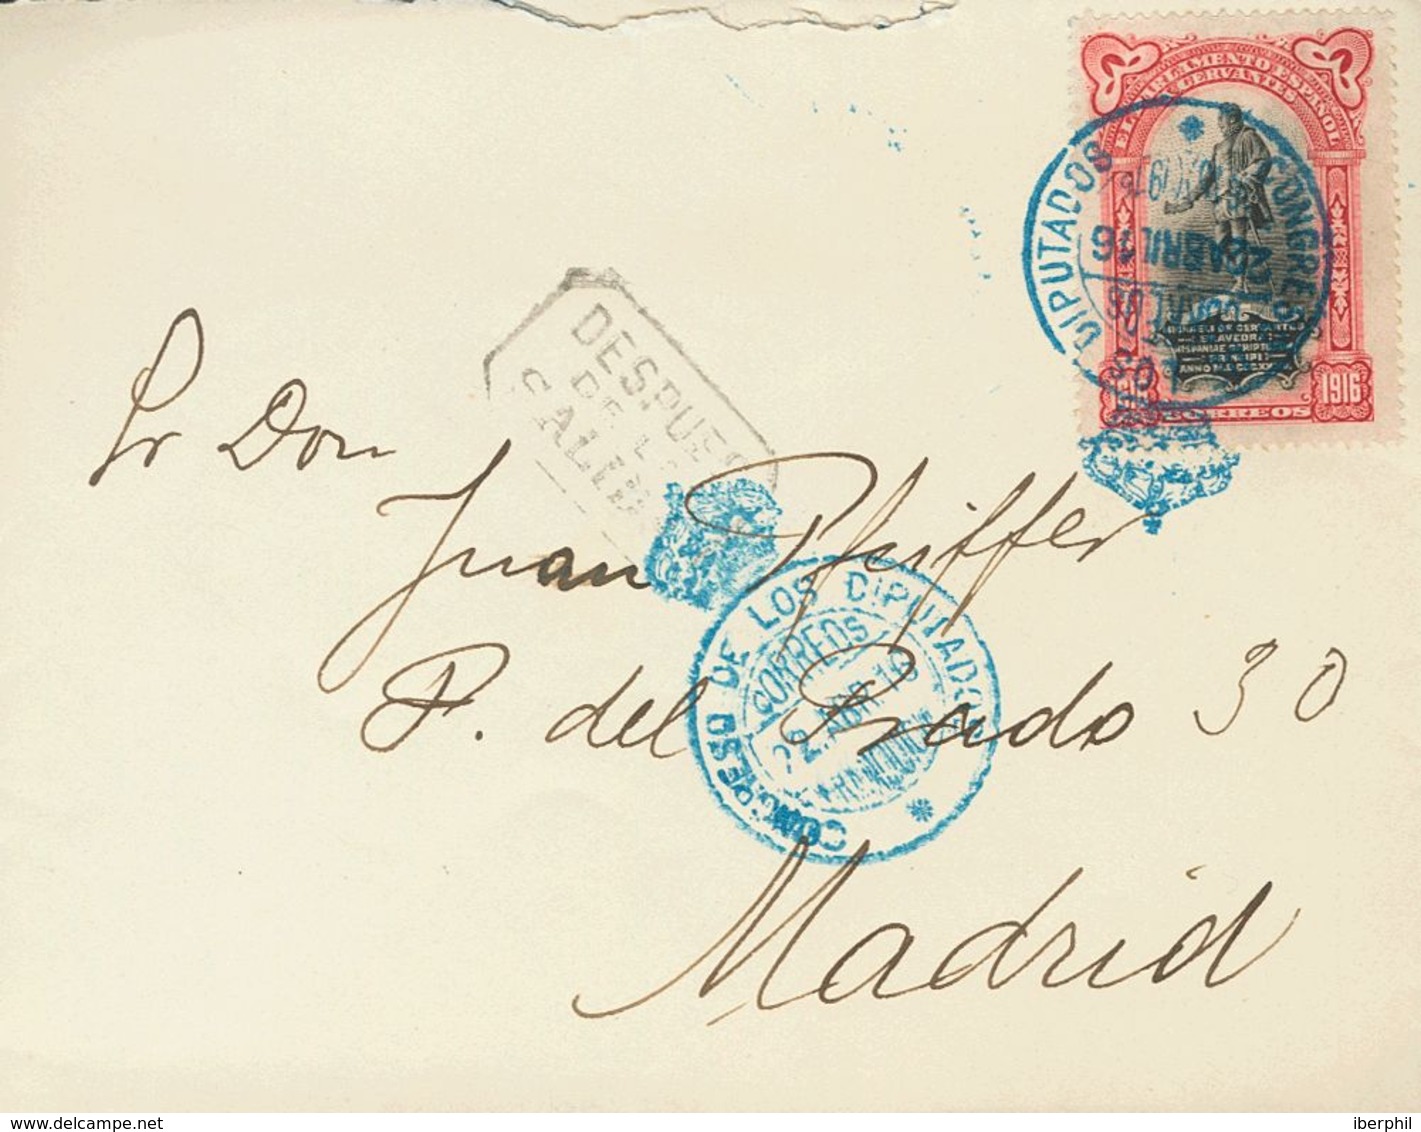 EL PARLAMENTO ESPAÑOL
A CERVANTES
1916
CORREOS
CONGRESO
DIPUTADOS
ABRIL 16
ANNO
DESPUES
DE L
SALID
Sr Don
Juan Pfeiffer
P. del Prado 30
Madrid
CONGRESO DE LOS DIPUTADOS
CORREOS
22 ABR 16
delcampe.net
iberphil